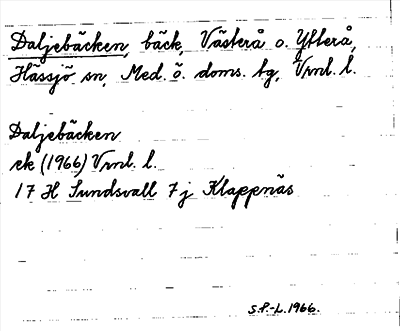 Daljebäcken, bäck, Västerå o. Ytterå,
Hässjö sn, Med. ö. doms. tg, Vrnl. l.
Daljebäcken
ek (1966) Vrnl. l.
17 H Sundsvall 7 j Klappnäs
S.P.-L. 1966.